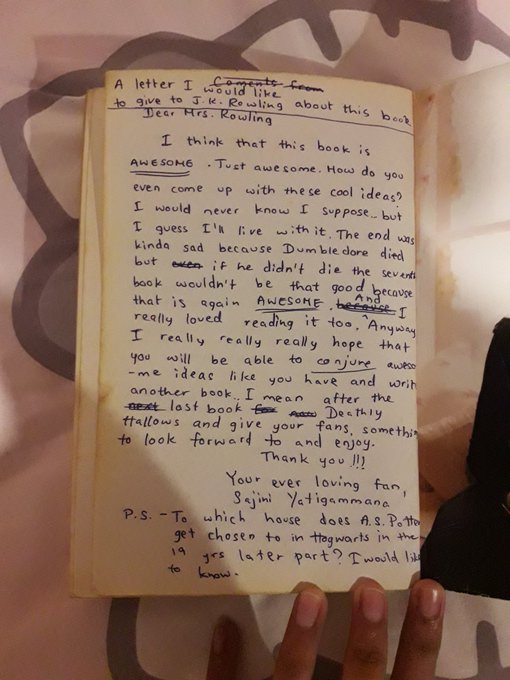 A letter I Coments from
would like
to give to J.K. Rowling about this book
Dear Mrs. Rowling
I think that this book is
AWESOME. Just awesome. How do you
even come up with these cool ideas?
I would never know I suppose.. but
I guess I'll live with it. The end was
kinda sad because Dumbledore died
but even if he didn't die the seventh
book wouldn't be that good because
that is again AWESOME. because And I
really loved reading it too. Anyway
I really really really hope that
you will be able to conjure aweso
-me ideas like you have and write
another book.. I mean after the
next last book for Deathly
Hallows and give your fans, somethin
to look forward to and enjoy.
Thank you !!!
Your ever loving fan,
Sajini Yatigammana
P.S. - To which house does A.S. Potter
get chosen to in Hogwarts in the
19 yrs later part? I would like
to know.